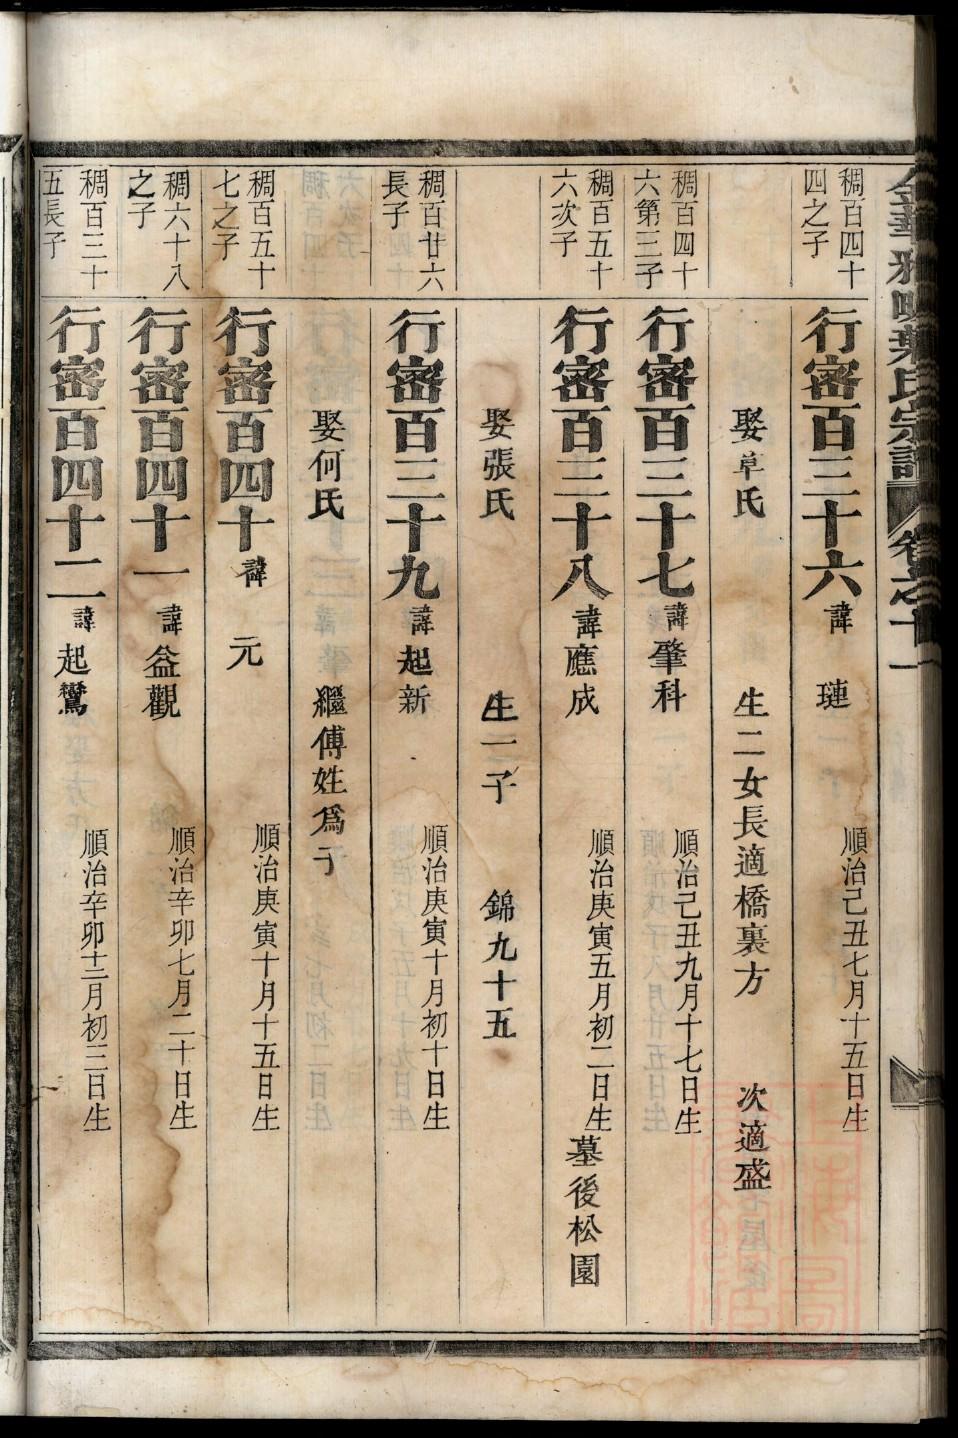 金華雅畈葉氏宗譜 卷之十一
稠百四十四之子
行密百三十六 諱 璉 順治己丑七月十五日生
娶章氏 生二女長適橋裏方 次適盛
稠百四十六第三子
行密百三十七 諱肇科 順治己丑九月十七日生
稠百五十六次子
行密百三十八 諱應成 順治庚寅五月初二日生 墓後松園
娶張氏 生一子 錦九十五
稠百廿六長子
行密百三十九 諱起新 順治庚寅十月初十日生
娶何氏 繼傅姓為子
稠百五十七之子
行密百四十 諱 元 順治庚寅十月十五日生
稠六十八之子
行密百四十一 諱益觀 順治辛卯七月二十日生
稠百三十五長子
行密百四十二 諱起鸞 順治辛卯十二月初三日生